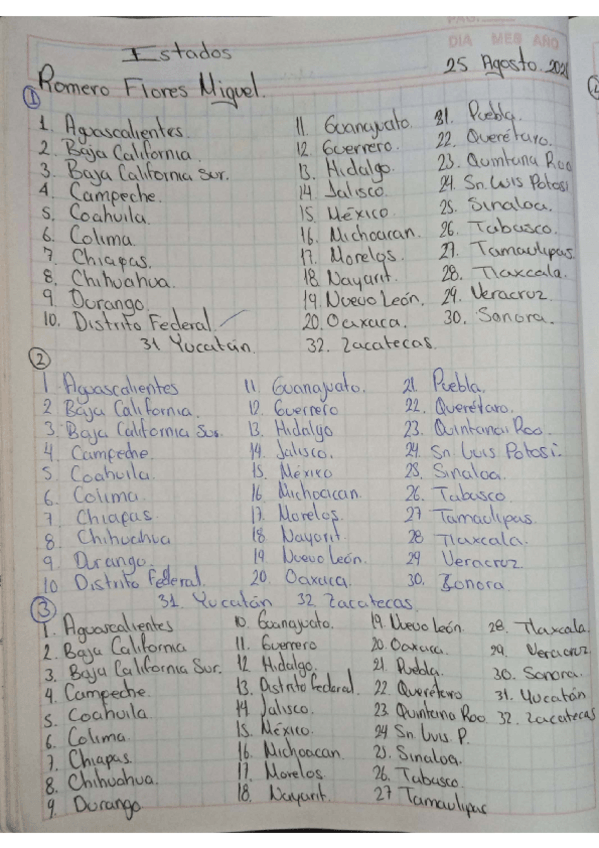 DIA MES AÑO
Estados
25 Agosto.
Romero Flores Miguel.
①
1. Aguascalientes.
2. Baja California.
3. Baja California Sur.
4. Campeche.
5. Coahuila.
6. Colima
7. Chiapas.
8. Chihuahua.
9. Durango.
10. Distrito Federal.
11. Guanajuato.
12. Guerrero.
13. Hidalgo.
14 Jalisco.
15. México.
16. Michoacan.
17. Morelos.
18. Nayarit.
19. Nuevo León.
20. Oaxaca.
21. Puebla.
22. Querétaro.
23. Quintana Roo
24. Sn. Luis Potosi
25. Sinaloa.
26. Tabasco.
27. Tamaulipas.
28. Tlaxcala.
29. Veracruz
30. Sonora.
31 Yucatán. 32. Zacatecas.
②
1 Aguascalientes
2 Baja California.
3. Baja California Sur.
4. Campeche.
5 Coahuila.
6. Colima
7 Chiapas.
8 Chihuahua
9 Durango.
10 Distrito Federal.
11. Guanajuato.
12. Guerrero
13. Hidalgo
14 Jalisco.
15. México
16 Michoacan.
17. Morelos.
18 Nayarit.
19 Nuevo León.
20 Oaxaca.
21. Puebla.
22. Querétaro.
23. Quintana Roo.
24. Sn Luis Potosi.
25. Sinaloa.
26. Tabasco.
27 Tamaulipas.
28 Tlaxcala.
29 Veracruz
30. Sonora
31. Yucatán 32 Zacatecas.
③
1. Aguascalientes
2. Baja California
3. Baja California Sur.
4. Campeche.
5. Coahuila
6. Colima.
7. Chiapas.
8. Chihuahua.
9. Durango
10. Guanajuato.
11. Guerrero
12 Hidalgo.
13. Distrito Federal.
14 Jalisco.
15. México.
16. Michoacan
17. Morelos
18. Nayarit.
19. Nuevo León
20. Oaxaca.
21. Puebla.
22 Querétaro
23 Quintana Roo
24 Sn Luis P.
25. Sinaloa.
26. Tabasco.
27 Tamaulipas
28. Tlaxcala.
29. Veracruz
30. Sonora.
31. Yucatán
32. Zacatecas